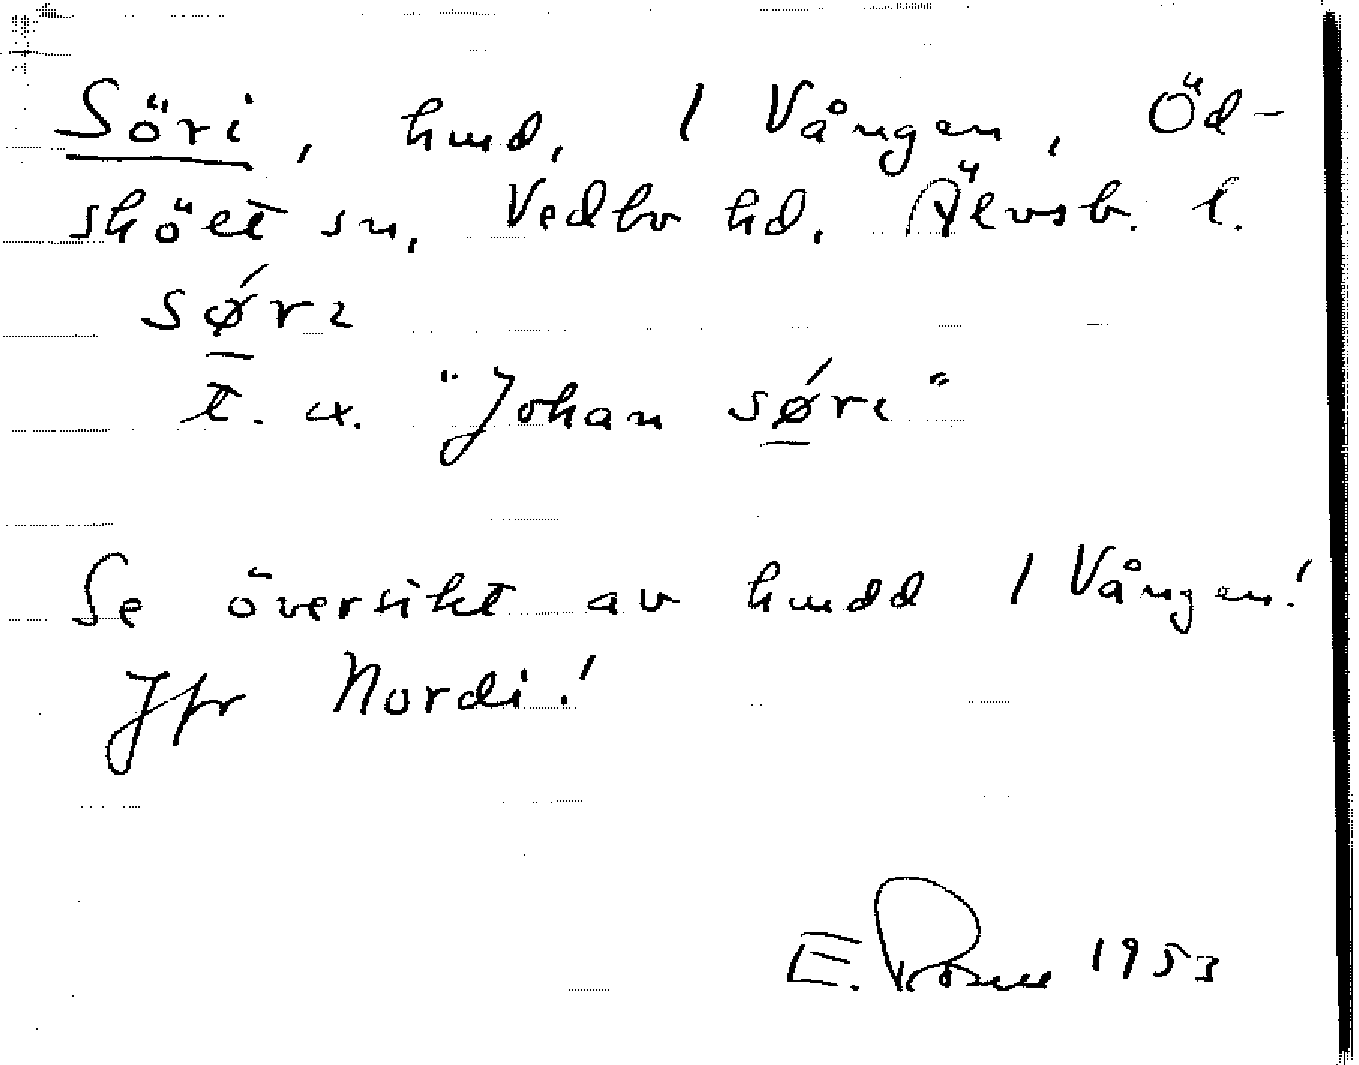 Söri, hmd, 1 Vången, Öd-
skölt sn, Vedbo hd, Älvsb. l.
sǿrɩ
t. ex. "Johan sǿrɩ"
Se översikt av hmdd 1 Vången!
Jfr Nordi!
E. Rosell 1953